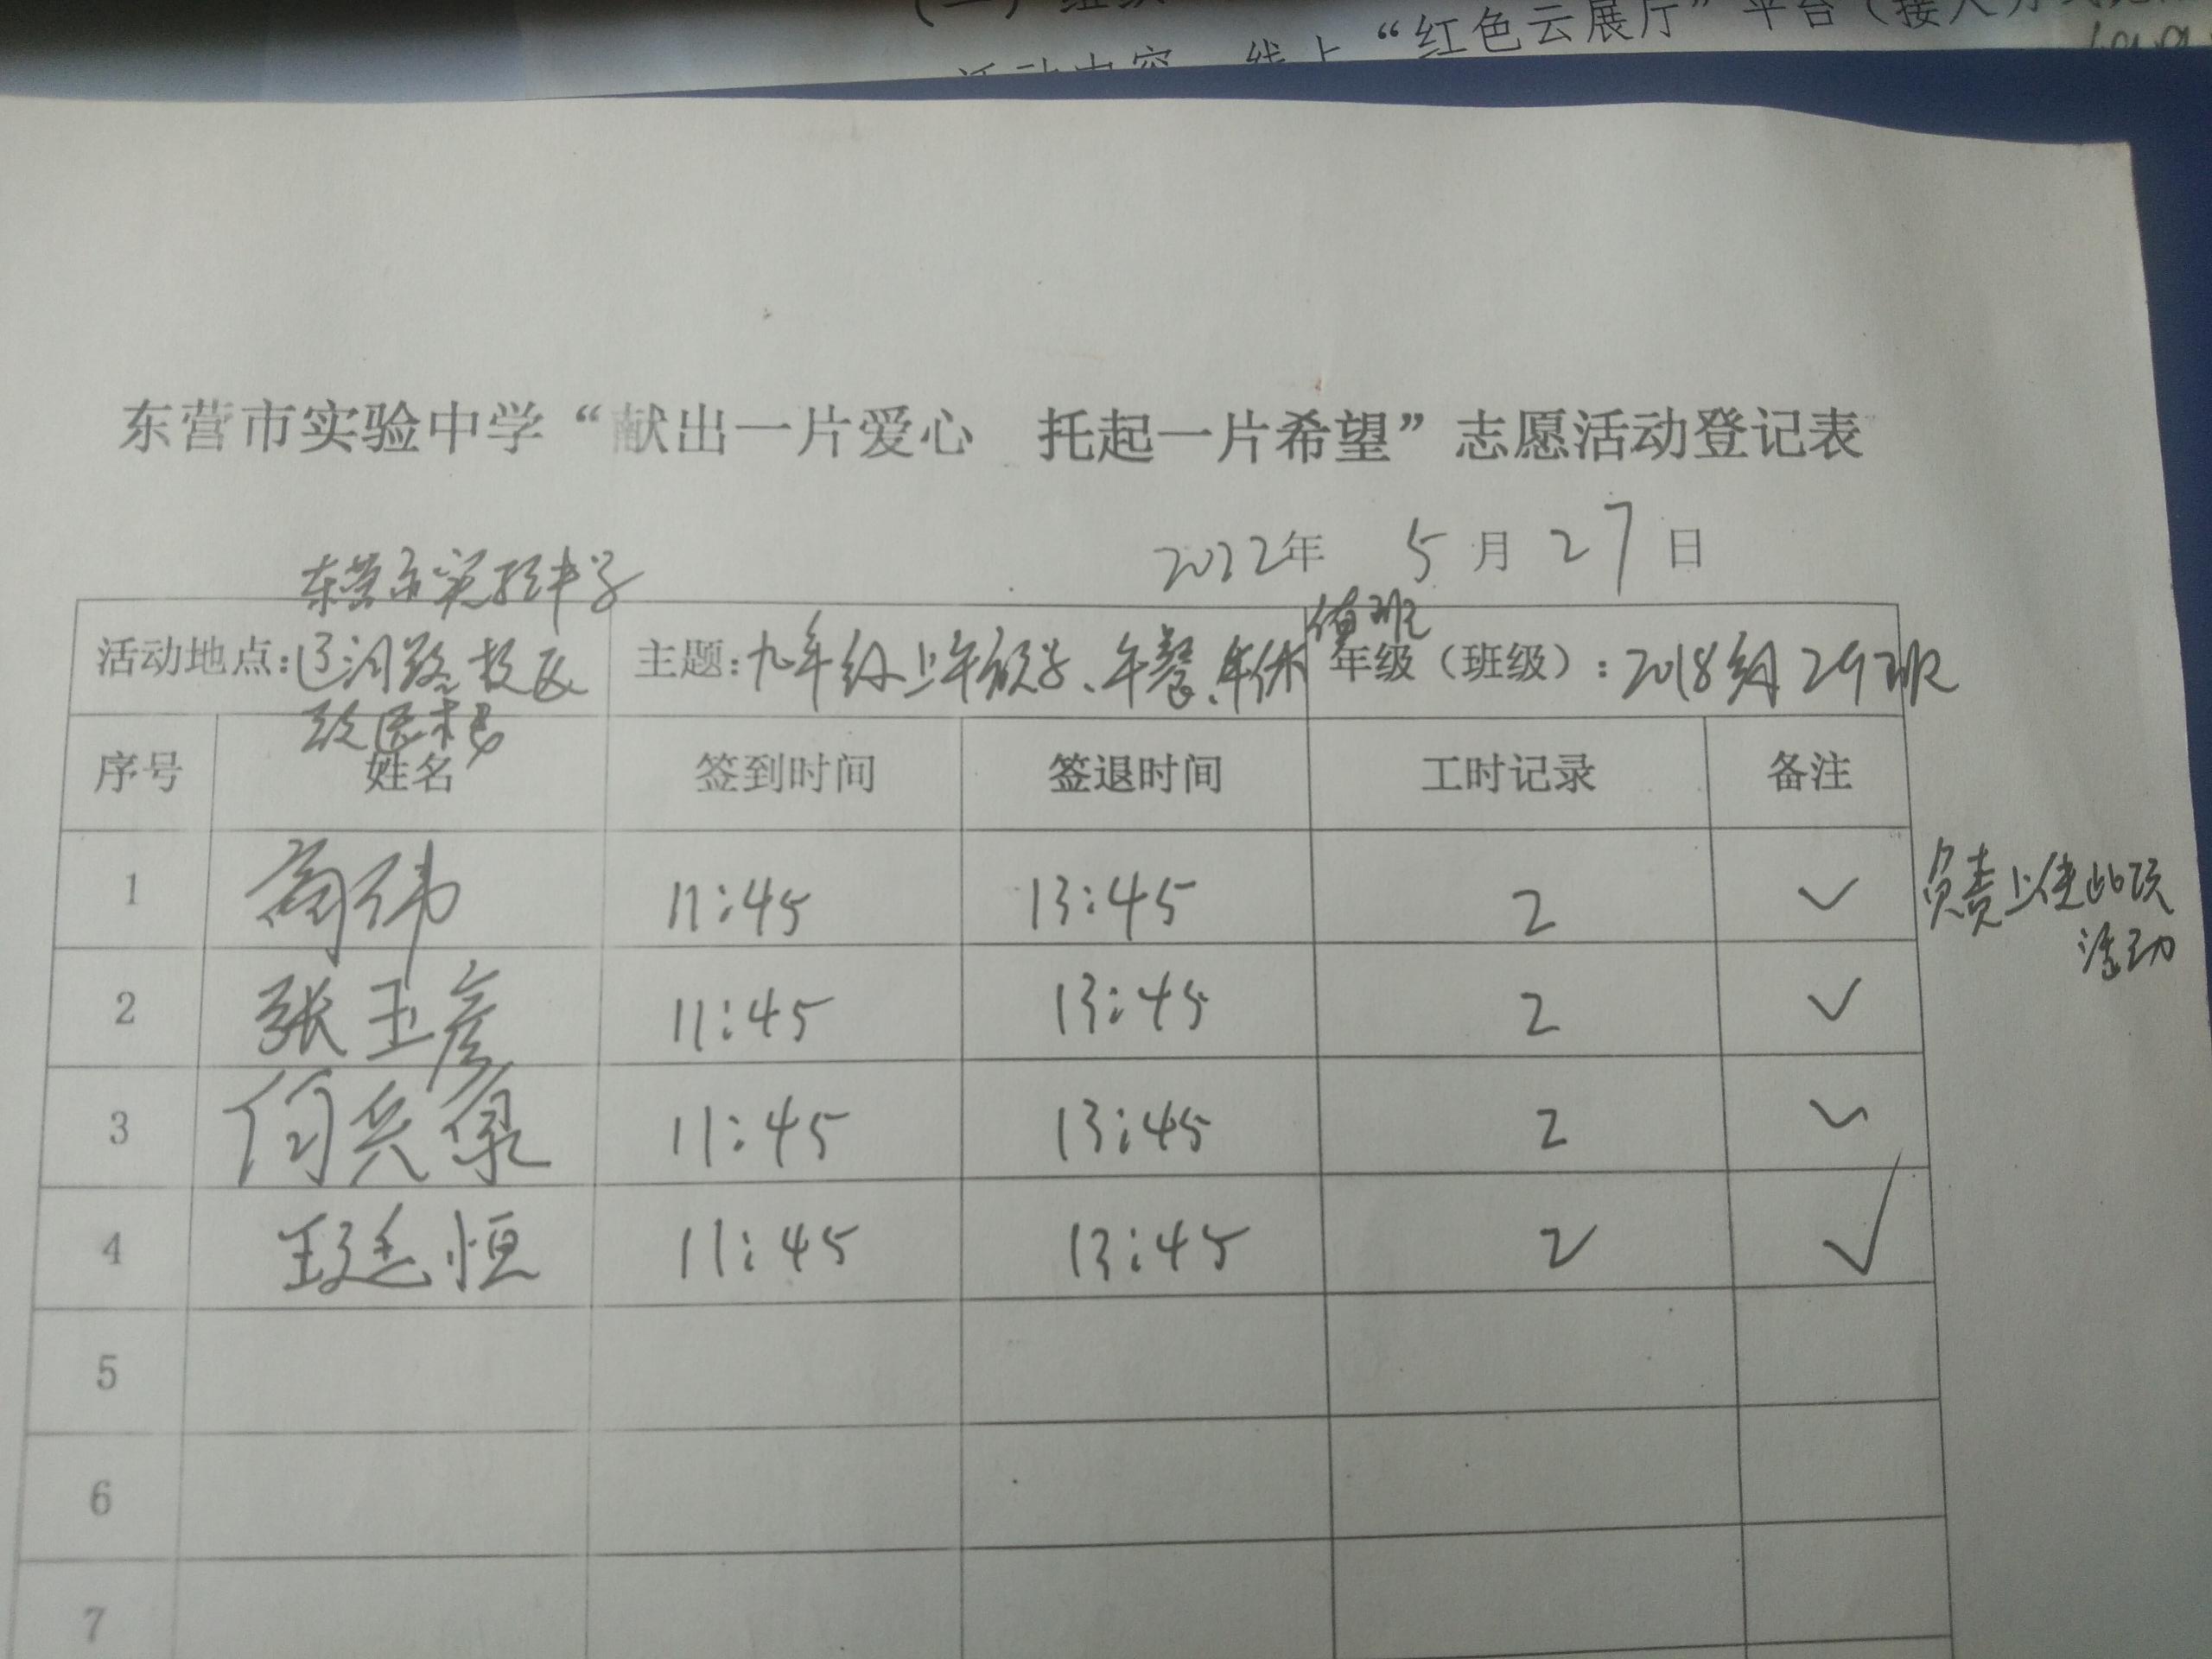 “红色云展厅”平台（接入方
活动内容 线上
东营市实验中学“献出一片爱心 托起一片希望”志愿活动登记表
2022年 5月27日
东营市实验中学
活动地点：辽河路校区
主题：九年级上午放学、午餐、午休值班
年级（班级）：2018级29班
序号 姓名 签到时间 签退时间 工时记录 备注
1 商伟 11:45 13:45 2 ✓ 负责上传此项
活动
2 张玉彦 11:45 13:45 2 ✓
3 11:45 13:45 2 ✓
4 王延恒 11:45 13:45 2 ✓
5
6
7